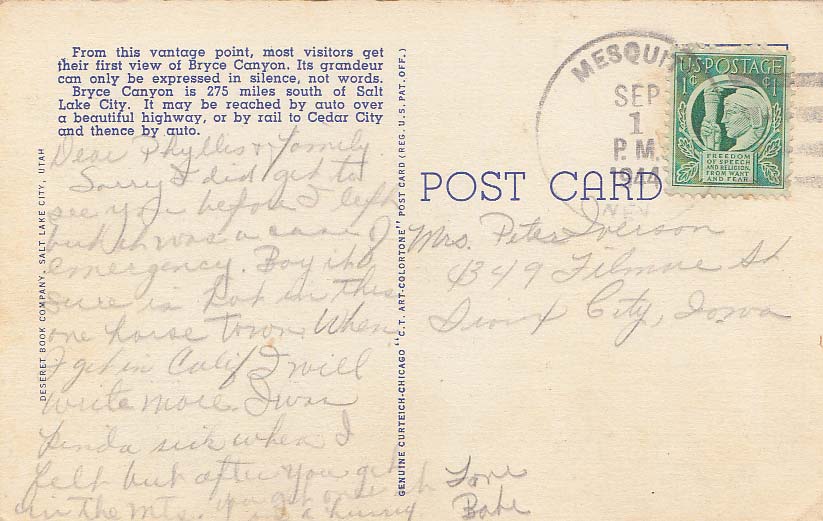 From this vantage point, most visitors get
their first view of Bryce Canyon. Its grandeur
can only be expressed in silence, not words.
Bryce Canyon is 275 miles south of Salt
Lake City. It may be reached by auto over
a beautiful highway, or by rail to Cedar City
and thence by auto.
Dear Phyllis & family
Sorry I did get to
see you before I left
but it was a case of
emergency. Boy it
sure is hot in this
one horse town. When
I get in Calif I will
write more. I was
kinda sick when I
left but after you get
in the Mts. you get over it
in a hurry.
Love
Babe
DESERET BOOK COMPANY, SALT LAKE CITY, UTAH
GENUINE CURTEICH-CHICAGO "C.T. ART-COLORTONE" POST CARD (REG. U.S. PAT. OFF.)
POST CARD
MESQUITE
SEP
1
P.M.
1944
NEV
U.S. POSTAGE
1¢ ¢1
FREEDOM
OF SPEECH
AND RELIGION,
FROM WANT
AND FEAR
Mrs. Peter Iverson
4349 Filmore St
Sioux City, Iowa